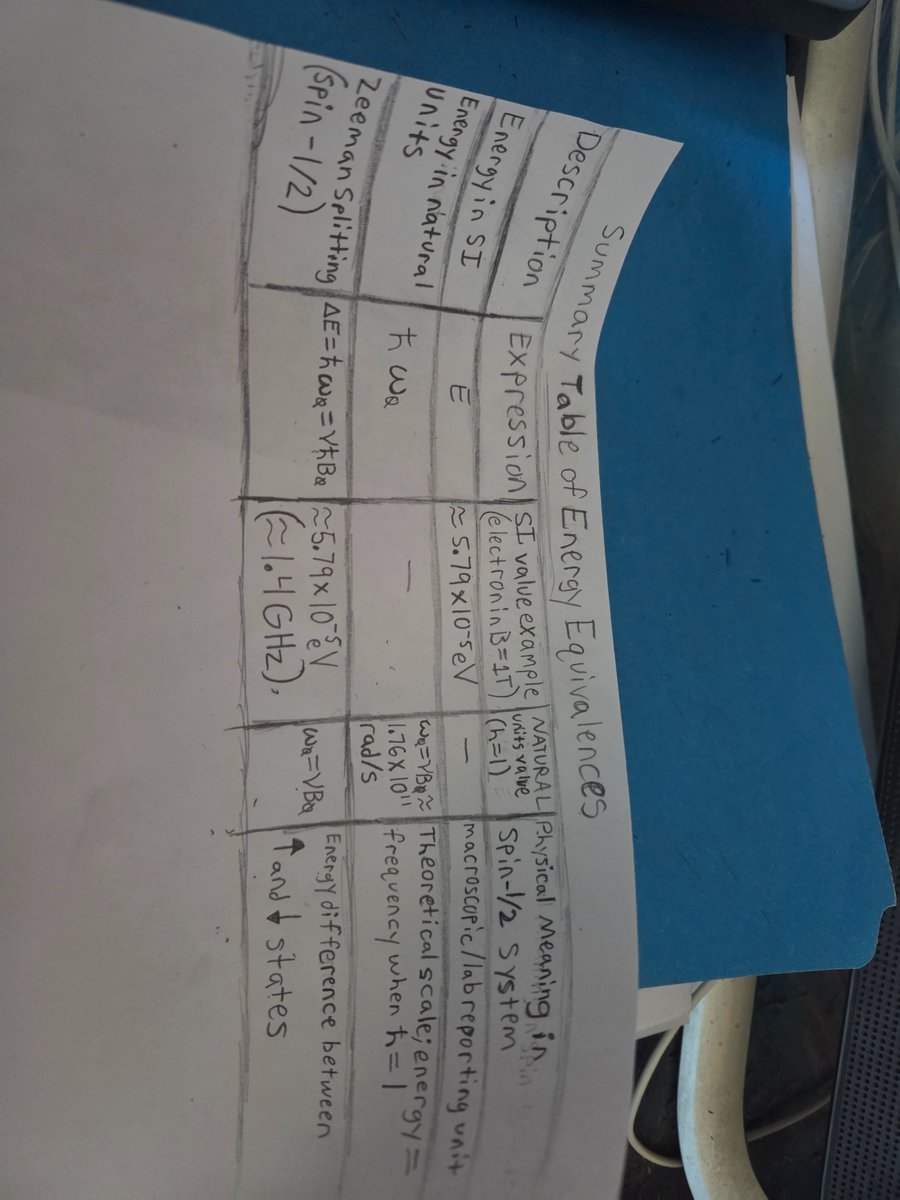 Summary Table of Energy Equivalences
Description
Expression
SI value example
(electron in B=1T)
NATURAL
units value
(h=1)
Physical meaning in
Spin-1/2 system
Energy in SI
E
≈5.79×10⁻⁵eV
—
macroscopic/lab reporting unit
Energy in natural
units
ħ ω₀
—
ω₀=γB₀≈
1.76×10¹¹
rad/s
Theoretical scale; energy =
frequency when ħ=1
Zeeman Splitting
(spin-1/2)
ΔE=ħω₀=γħB₀
≈5.79×10⁻⁵eV
(≈1.4GHz).
ω₀=γB₀
Energy difference between
↑ and ↓ states